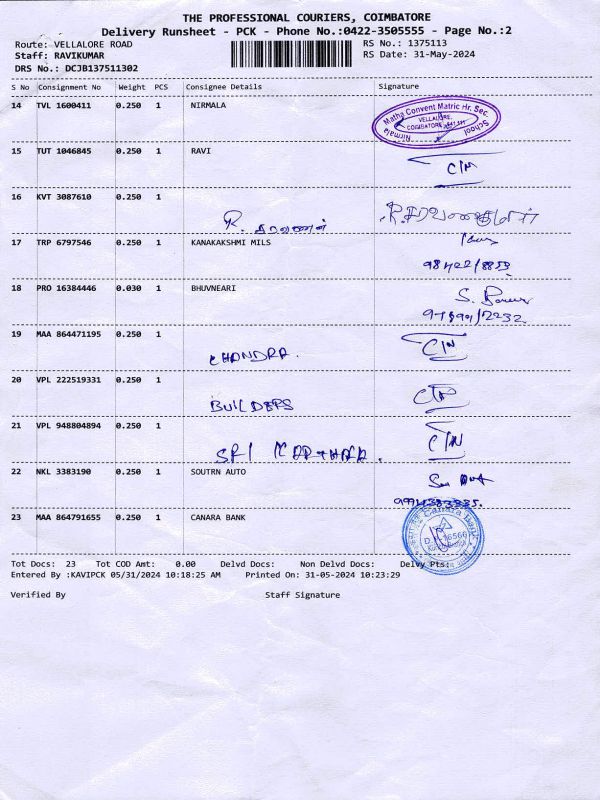 THE PROFESSIONAL COURIERS, COIMBATORE
Delivery Runsheet - PCK - Phone No.:0422-3505555 - Page No.:2
Route: VELLALORE ROAD RS No.: 1375113
Staff: RAVIKUMAR RS Date: 31-May-2024
DRS No.: DCJB137511302
S No Consignment No Weight PCS Consignee Details Signature
14 TVL 1600411 0.250 1 NIRMALA
Nirmala Matha Convent Matric Hr. Sec. School
VELLALORE,
COIMBATORE - 641 111
15 TUT 1046845 0.250 1 RAVI
C/N
16 KVT 3087610 0.250 1
R. சரவணன் R. சரவணகுமார்
17 TRP 6797546 0.250 1 KANAKAKSHMI MILS
18 PRO 16384446 0.030 1 BHUVNEARI
19 MAA 864471195 0.250 1
CHANDRA. C/N
20 VPL 222519331 0.250 1
BUILDERS
21 VPL 948804894 0.250 1
SRI C/N
22 NKL 3383190 0.250 1 SOUTRN AUTO
23 MAA 864791655 0.250 1 CANARA BANK
Canara Bank
Tot Docs: 23 Tot COD Amt: 0.00 Delvd Docs: Non Delvd Docs: Delvy Pts:
Entered By :KAVIPCK 05/31/2024 10:18:25 AM Printed On: 31-05-2024 10:23:29
Verified By Staff Signature